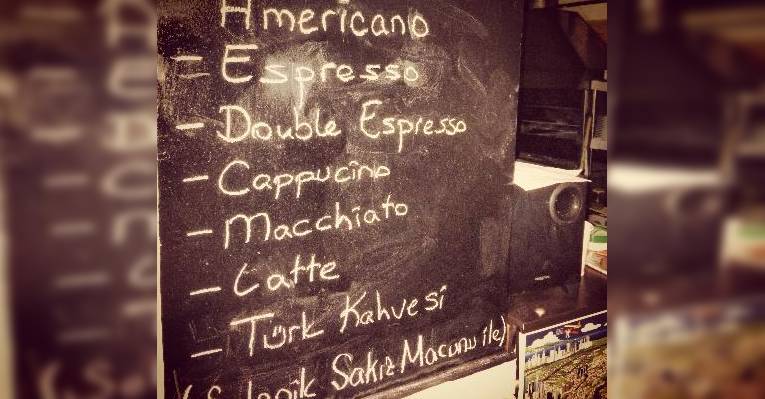 Americano
= Espresso
- Double Espresso
- Cappucino
- Macchiato
- Latte
- Türk Kahvesi
(Selanik Sakız Macunu ile)